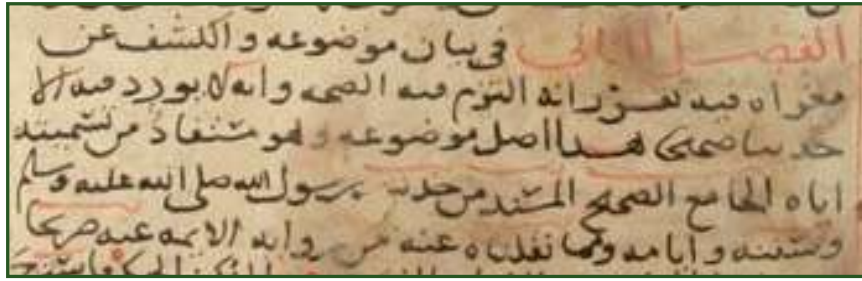 الفصل الثاني في بيان موضوعه والكشف عن
مغزاه فيه تقرر انه التزم فيه الصحه وانه لا يورد فيه الا
حديثا صحيحا هذا اصل موضوعه وهو مستفاد من تسميته
اياه الجامع الصحيح المسند من حديث رسول الله صلى الله عليه وسلم
وسننه وايامه ومما نقلناه عنه من روايه الايمه عنه صريحا